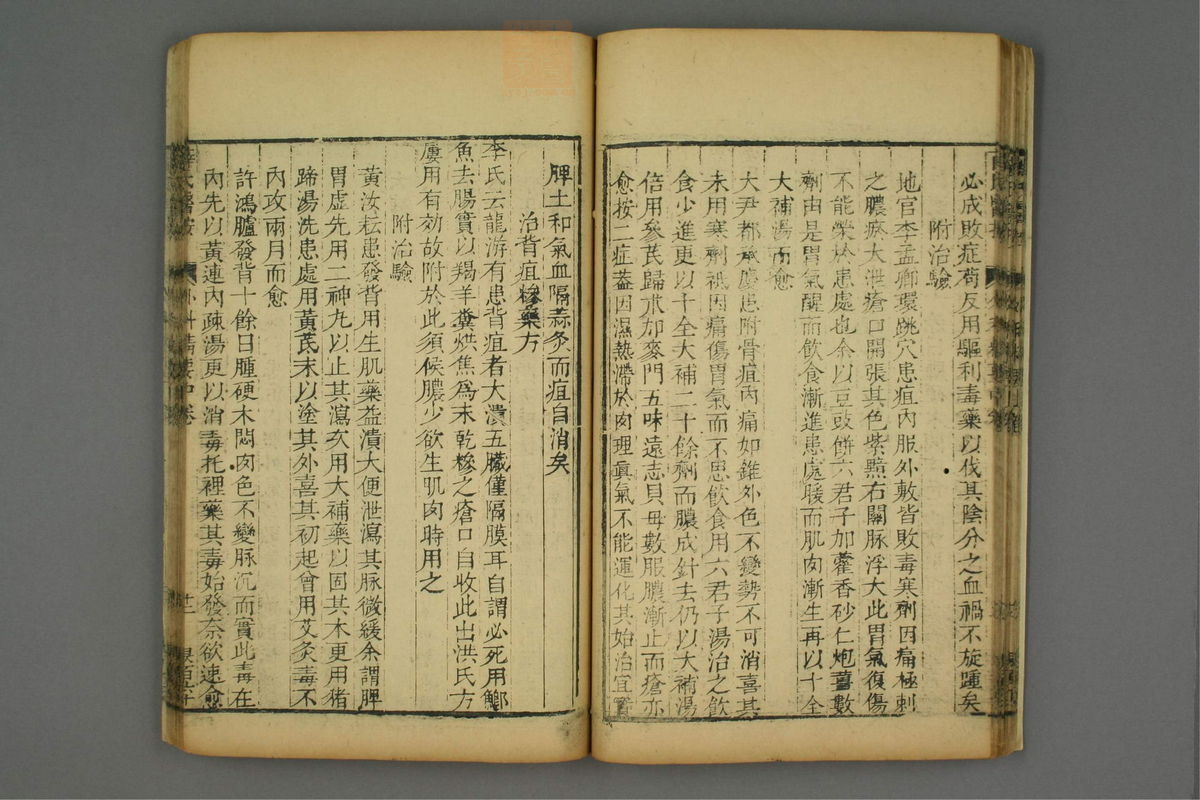 必成敗症苟反用驅利毒藥以伐其陰分之血禍不旋踵矣
附治驗
地官李孟卿環跳穴患疽內服外敷皆敗毒寒劑因痛極刺
之膿瘀大泄瘡口開張其色紫黯右關脉浮大此胃氣復傷
不能榮於患處也余以豆豉餅六君子加藿香砂仁炮薑數
劑由是胃氣醒而飲食漸進患處暖而肌肉漸生再以十全
大補湯而愈
大尹都承慶患附骨疽內痛如錐外色不變勢不可消喜其
未用寒劑祇因痛傷胃氣而不思飲食用六君子湯治之飲
食少進更以十全大補二十餘劑而膿成針去仍以大補湯
倍用參芪歸朮加麥門五味遠志貝母數服膿漸止而瘡亦
愈按二症葢因濕熱滯於肉理眞氣不能運化其始治宜
脾土和氣血隔蒜灸而疽自消矣
治背疽糝藥方
李氏云龍游有患背疽者大潰五臟僅隔膜耳自謂必死用鯽
魚去腸實以羯羊糞烘焦為末乾糝之瘡口自收此出洪氏方
屢用有効故附於此須候膿少欲生肌肉時用之
附治驗
黃汝耘患發背用生肌藥益潰大便泄瀉其脉微緩余謂脾
胃虛先用二神丸以止其瀉次用大補藥以固其本更用猪
蹄湯洗患處用黃芪末以塗其外喜其初起曾用艾灸毒不
內攻兩月而愈
許鴻臚發背十餘日腫硬木悶肉色不變脉沉而實此毒在
內先以黃連內疎湯更以消毒托裡藥其毒始發奈欲速愈